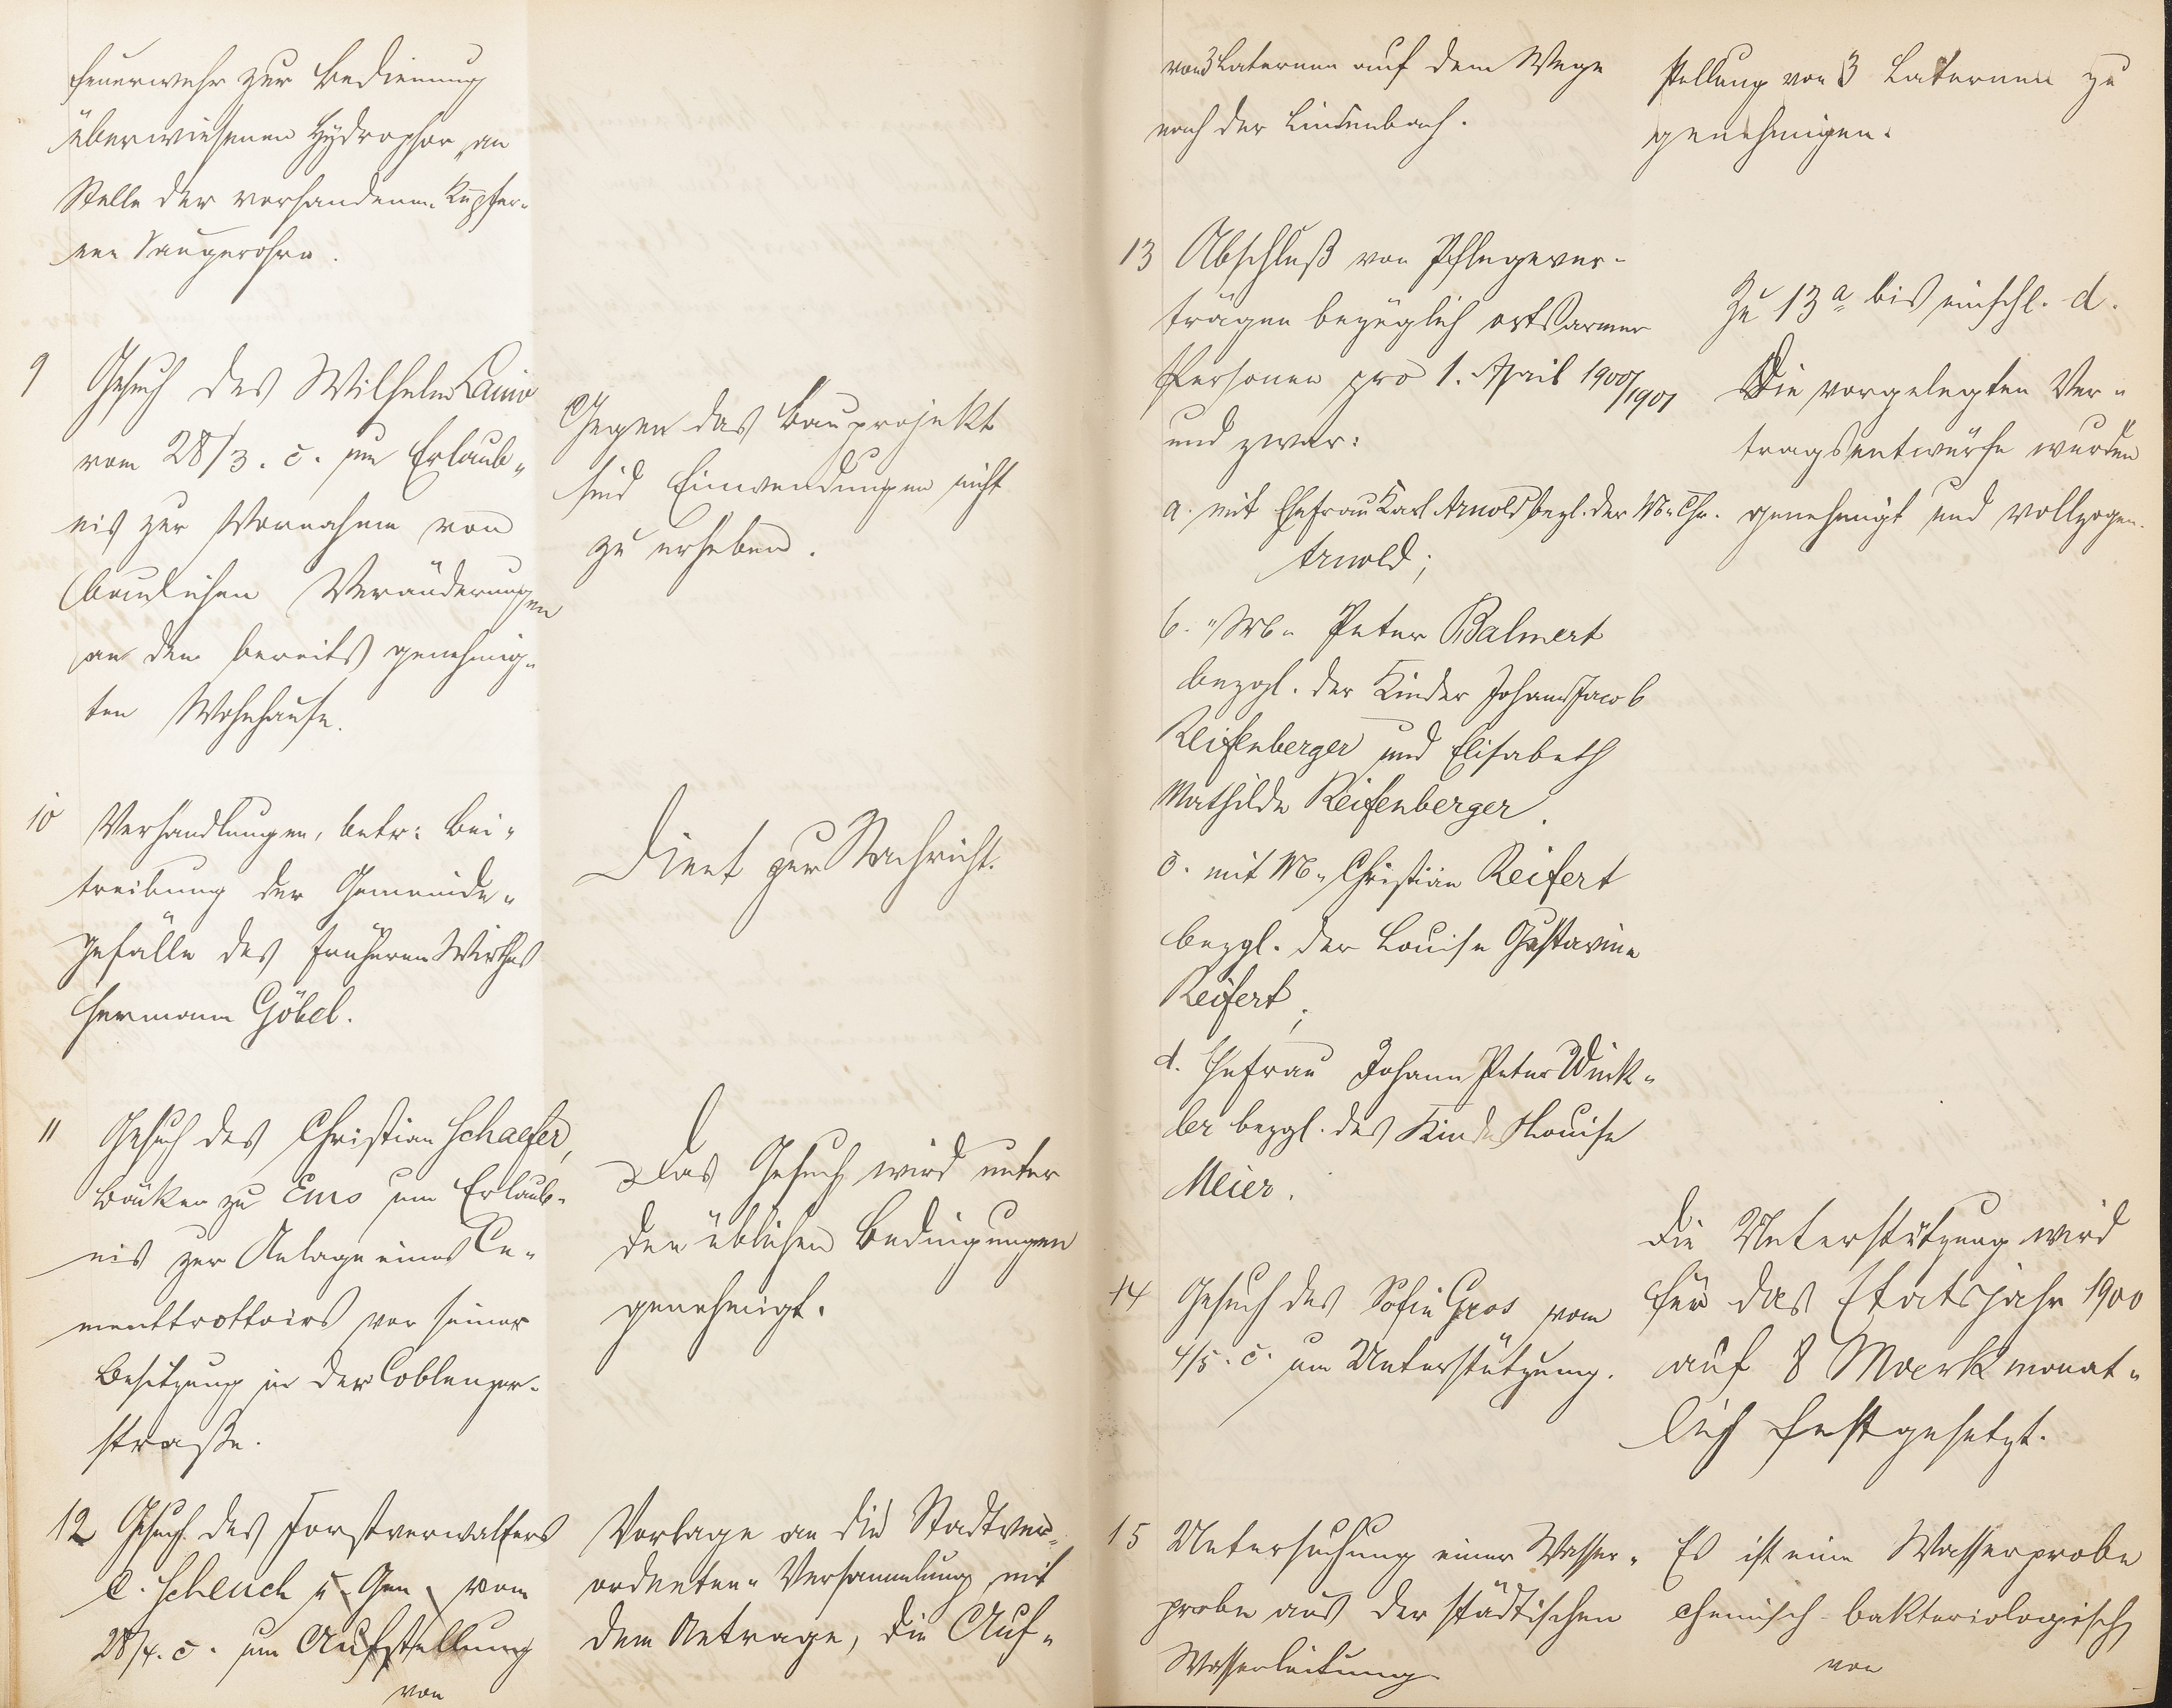 Feuerwehr zur Bedienung
überwiesenen Hydrophor, an
Stelle der vorhandenen Kupfer-
nen Saugerohre.
9 Gesuch des Wilhelm
vom 28/3. c. um Erlaub-
nis zur Vornahme von
baulichen Veränderungen
an dem bereits genehmig-
ten Wohnhause.
Gegen das Bauprojekt
sind Einwendungen nicht
zu erheben.
10 Verhandlungen, betr: Bei-
treibung der Gemeinde-
gefälle des früheren Wirthes
Hermann Göbel.
Dient zur Nachricht.
11 Gesuch des Christian Schaefer,
Bäcker zu Ems um Erlaub-
nis zur Anlage eines Ce-
menttrottoirs vor seiner
Besitzung in der Coblenzer-
straße.
Das Gesuch wird unter
den üblichen Bedingungen
genehmigt.
12 Gesuch des Forstverwalters
C. Scheuch u. Gen. vom
28/4. c. um Aufstellung
von
Vorlage an die Stadtver-
ordneten-Versammlung mit
dem Antrage, die Auf-
von 3 Laternen auf dem Wege
nach der Lindenbach.
stellung von 3 Laternen zu
genehmigen.
13 Abschluß von Pflegever-
trägen bezüglich ortsarmer
Personen pro 1. April 1900/1901
und zwar:
a. mit Ehefrau Karl Arnold bezgl. der W. Chr.
Arnold;
b. " W. Peter Balmert
bezgl. der Kinder Johann Jacob
Reifenberger und Elisabeth
Mathilde Reifenberger.
c. mit W. Christian Reifert
bezgl. der Louise Gustavine
Reifert;
d. Ehefrau Johann Peter Wink-
ler bezgl. des Kindes Louise
Meier.
Zu 13 a bis einschl. d.
Die vorgelegten Ver-
tragsentwürfe wurden
genehmigt und vollzogen.
14 Gesuch des Sofie Gros vom
4/5. c. um Unterstützung.
Die Unterstützung wird
für das Etatsjahr 1900
auf 8 Mark monat-
lich festgesetzt.
15 Untersuchung einer Wasser-
probe aus der städtischen
Wasserleitung
Es ist eine Wasserprobe
chemisch-bakteriologisch
von